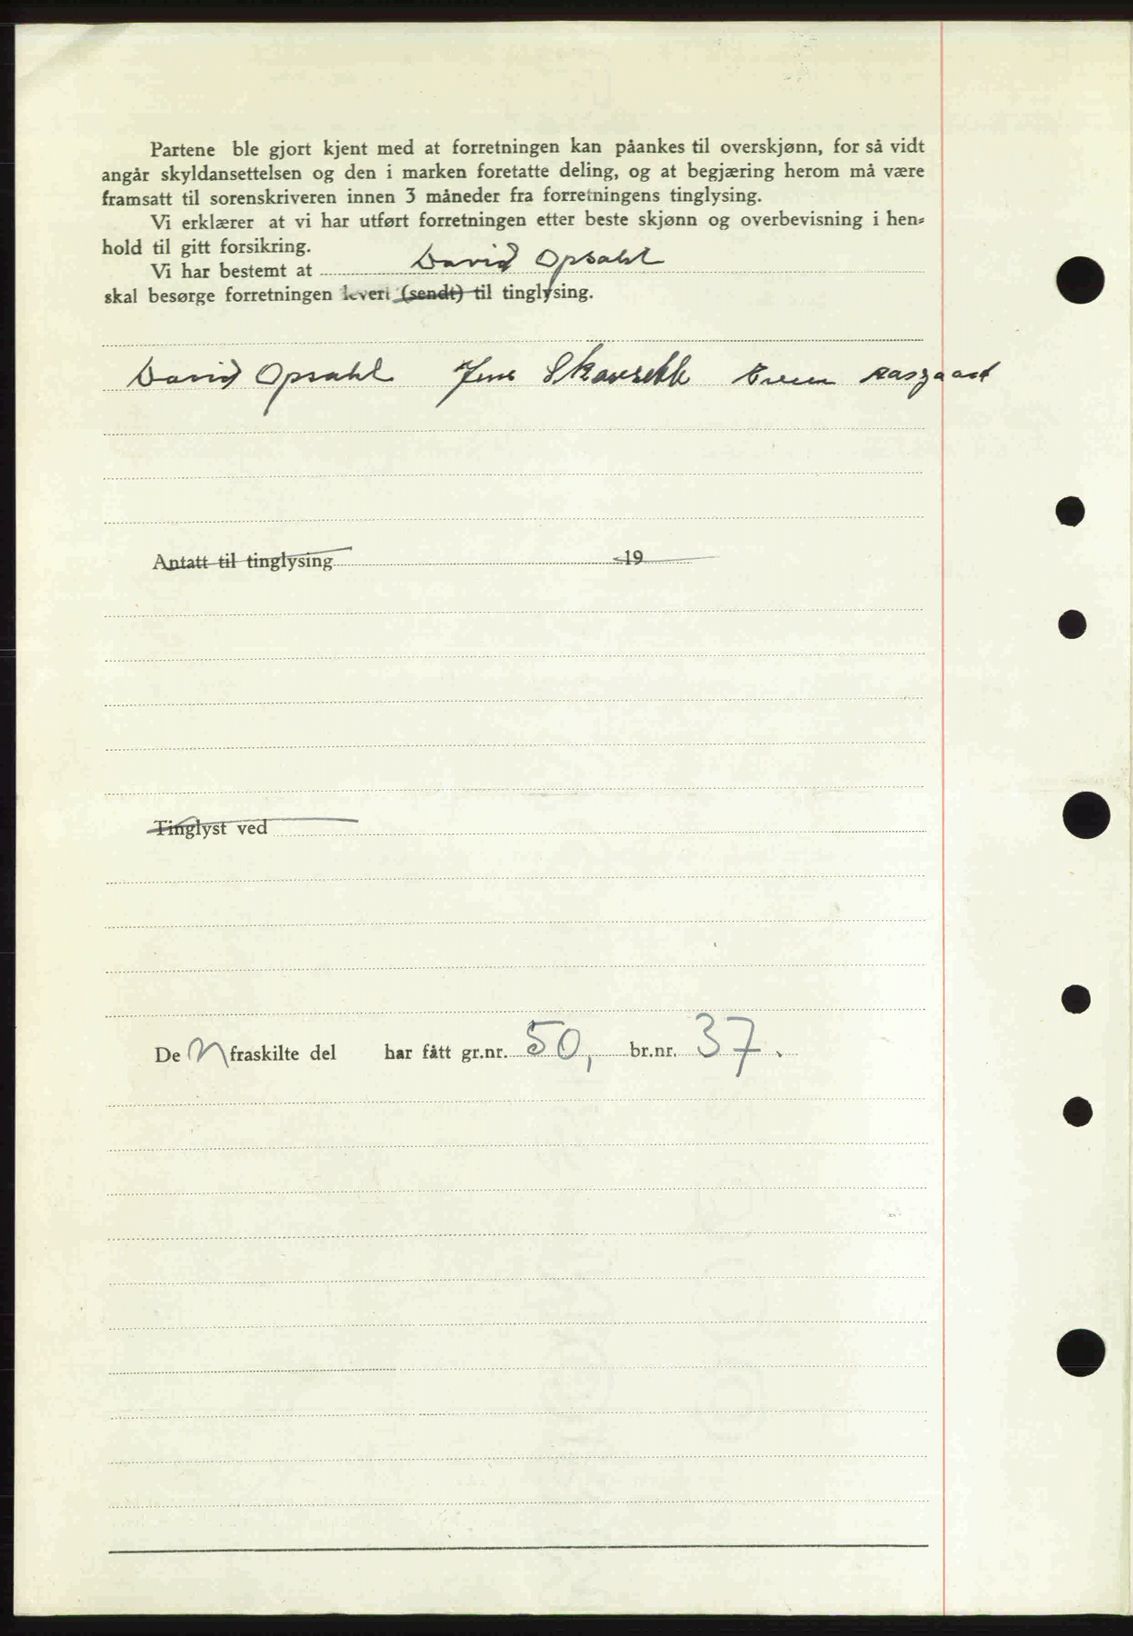 Partene ble gjort kjent med at forretningen kan påankes til overskjønn, for så vidt
angår skyldansettelsen og den i marken foretatte deling, og at begjæring herom må være
framsatt til sorenskriveren innen 3 måneder fra forretningens tinglysing.
Vi erklærer at vi har utført forretningen etter beste skjønn og overbevisning i hen-
hold til gitt forsikring.
Vi har bestemt at David Opsahl
skal besørge forretningen levert (sendt) til tinglysing.
David Opsahl Jens Skavsekk Even Aasgaard
Antatt til tinglysing 19
Tinglyst ved
De n fraskilte del har fått gr.nr. 50, br.nr. 37.